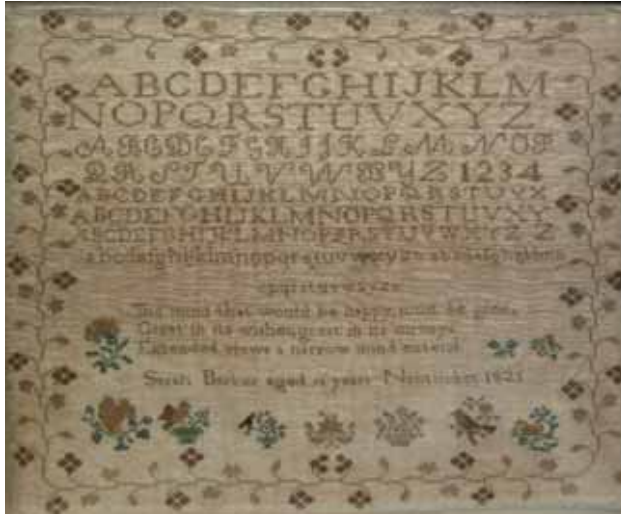 ABCDEFGHIJKLM
NOPQRSTUVXYZ
ABCDEFGHIJKLMNOP
QRSTUVWXYZ 1234
ABCDEFGHIJKLMNOPQRSTUVX
ABCDEFGHIJKLMNOPQRSTUVXY
ABCDEFGHIJKLMNOPQRSTUVWXYZ Z
abcdefghijklmnopqrstuvwxyz
The mind that would be happy, must be great
Great in its wishes, great in its surveys.
Extended views a narrow mind extend.
Sarah aged years Nantucket 1821